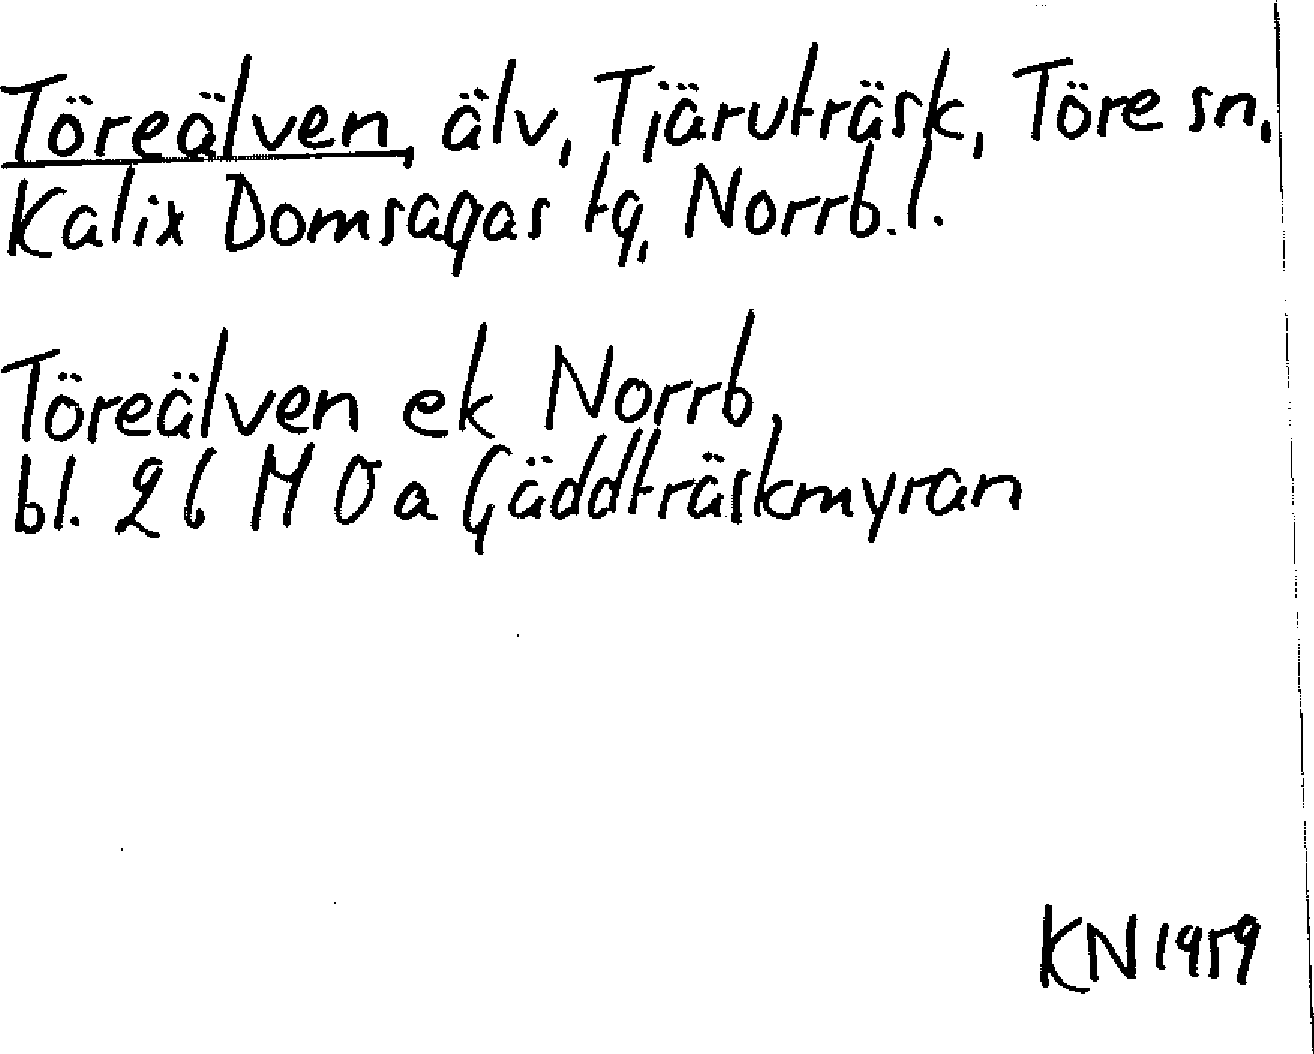 Töreälven, älv, Tjäruträsk, Töre sn,
Kalix Domsagas tg, Norrb.l.
Töreälven ek Norrb,
bl. 26 M 0 a Gäddträskmyran
KN 1959